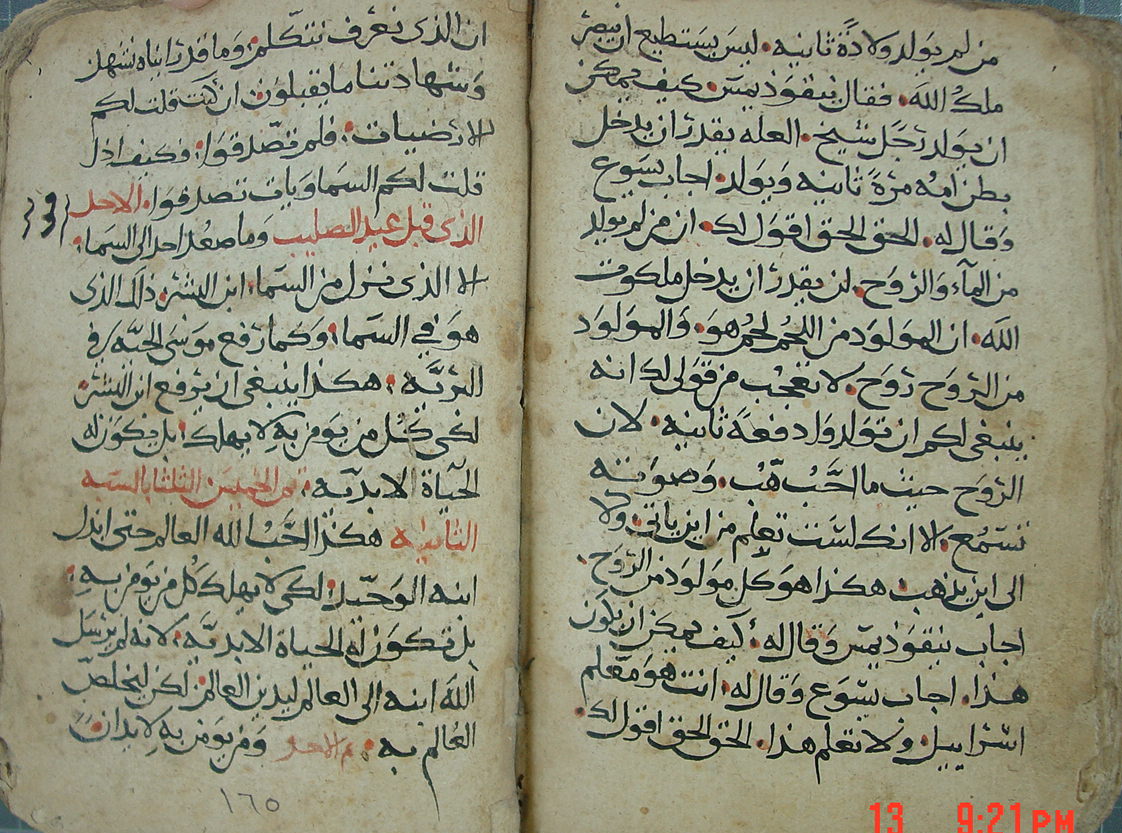 من لم يولد ولادة ثانيه. ليس يستطيع ان يبصر
ملك الله. فقال نيقوذيمس. كيف يمكن
ان يولد رجل شيخ. العله يقدر ان يدخل
بطن امه مرة ثانيه ويولد. اجاب يسوع
وقال له. الحق الحق اقول لك. ان من لم يولد
من المآء والروح. لن يقدر ان يدخل ملكوت
الله. ان المولود من اللحم لحم هو. والمولود
من الروح روح. لا تعجب من قولى لك انه
ينبغى لكم ان تولدوا دفعة ثانيه. لان
الروح حيث ما احب هب. وصوته
تسمع. الا انك لست تعلم من اين ياتى. ولا
الى اين يذهب. هكذا هو كل مولود من الروح.
اجاب نيقوذيمس وقال له. كيف يمكن ان يكون
هذا. اجاب يسوع وقال له. انت هو معلم
اسراييل. ولا تعلم هذا. الحق الحق اقول لك.
ان الذى نعرف نتكلم. وما قد راناه نشهد
وشهادتنا ما يقبلون. ان كنت قلت لكم
الارضيات. فلم تصدقوا. فكيف اذا
قلت لكم السماويات تصدقوا. الاحد
الذى قبل عيد الصليب وما صعد احد الى السما.
الا الذى نزل من السما. ابن البشر. ذلك الذى
هو في السما. وكما رفع موسى الحيه في
البريه. هكذا ينبغى ان يرفع ابن البشر.
لكى كل من يومن به لا يهلك. بل يكون له
الحياة الابديه. من الخميس الثلثا بالسبه
الثانيه هكذا احب الله العالم حتى ابذل
ابنه الوحيد. لكى لا يهلك كل من يومن به.
بل تكون له الحياة الابديه. لانه لم يرسل
الله ابنه الى العالم ليدين العالم. لكن ليخلص
العالم به. تم الاحد ومن يومن به لا يدان
١٦٥
13 9:21 PM